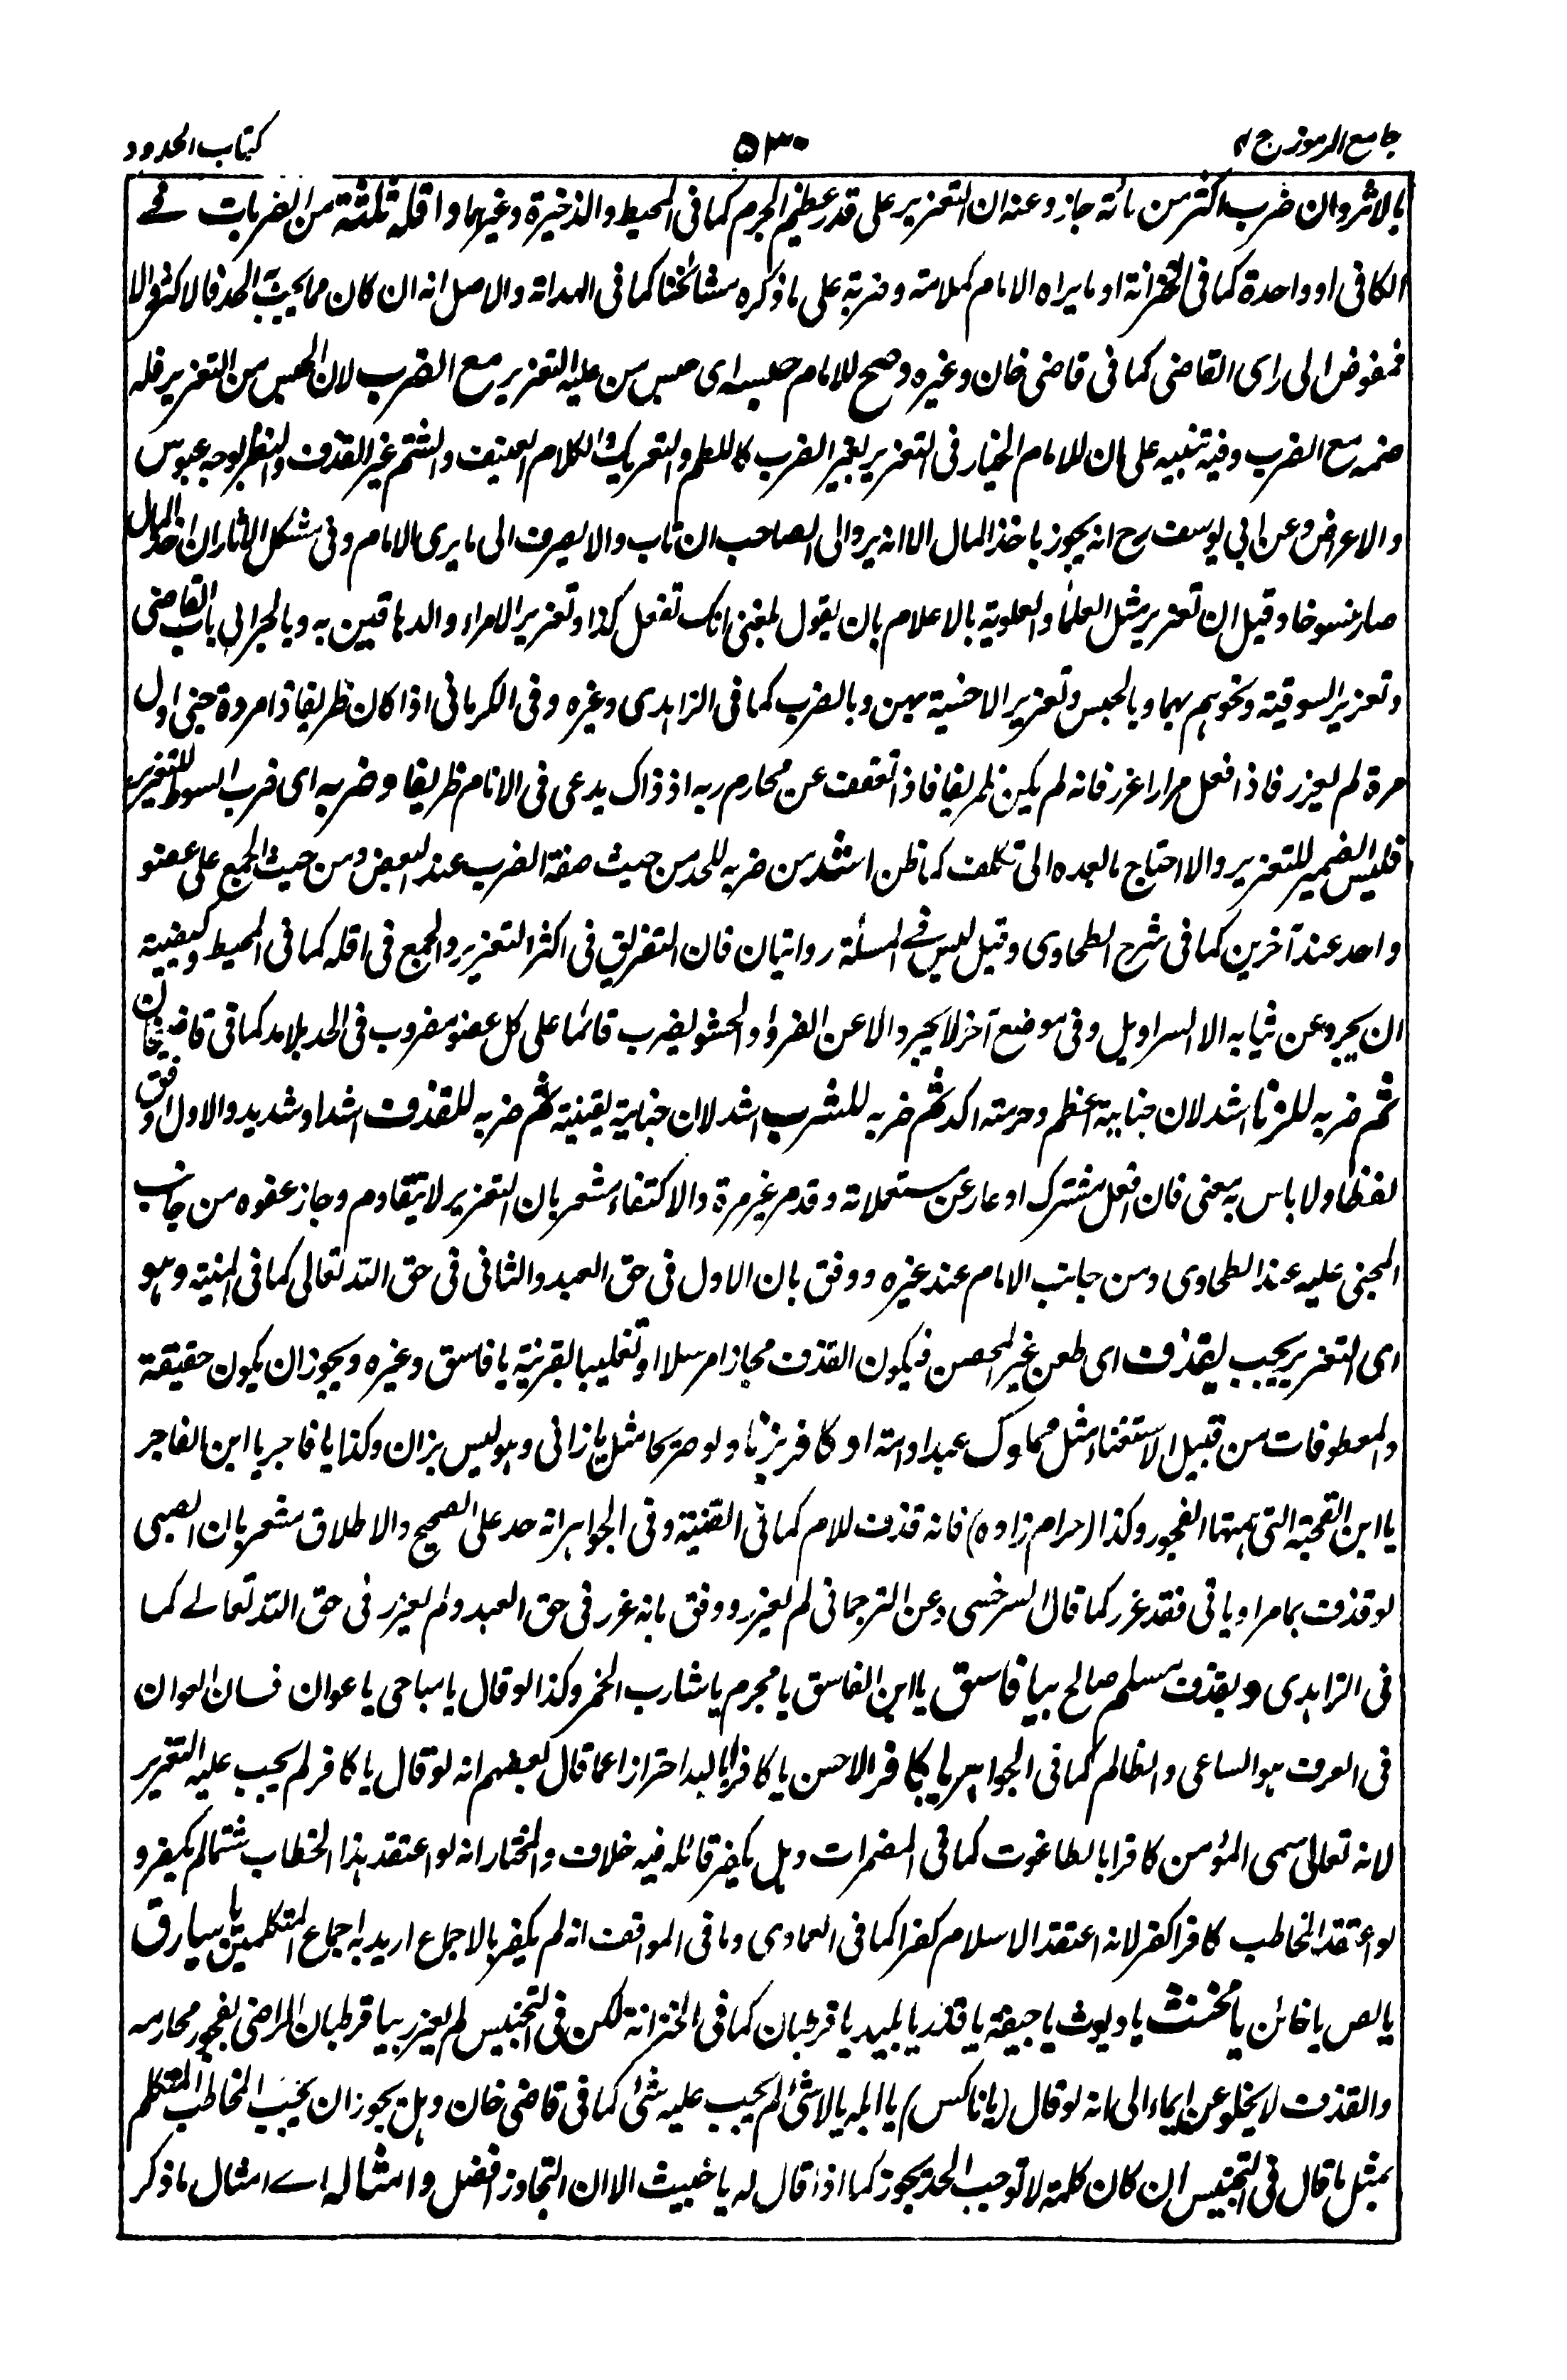 جامع الرموز ج ۲
۵۳۰
کتاب الحدود
بالاثر وان ضرب اکثر من مائة جاز وعنه ان التعزیر علی قدر عظیم الجرم کما فی المحیط والذخیرة وغیرهما واقله ثلثة من الضربات فے
الکافی او واحدة کما فی الخزانة او ما یراه الامام کملامة وضربة علی ما ذکره مشائخنا کما فی الهدایة والاصل انه ان کان مما یجب به الحد فالاکثر والا
فمفوض الی رای القاضی کما فی قاضی خان وغیره وصح للامام حبسه ای حبس من علیه التعزیر مع الضرب لان الحبس من التعزیر فله
ضمه مع الضرب وفیه تنبیه علی ان للامام الخیار فی التعزیر بغیر الضرب کاللطم والتعریک والکلام العنیف والشتم غیر القذف والنظر بوجه عبوس
والاعراض وعن ابی یوسف رح انه یجوز باخذ المال الا انه یرد الی الصاحب ان تاب والا یصرف الی ما یری الامام وفی مشکل الاثار ان اخذ المال
صار منسوخا وقیل ان تعزیر مثل العلماء والعلویة بالاعلام بان یقول بلغنی انک تفعل کذا وتعزیر الامراء والدهاقین به وبالجر الی باب القاضی
وتعزیر السوقیة ونحوهم بهما وبالحبس وتعزیر الاخسة بهن وبالضرب کما فی الزاهدی وغیره وفی الکرمانی اذا کان ظریفا ذا مروة جنی اول
مرة لم یعزر فاذا فعل مرارا عزر فانه لم یکن ظریفا فاذا تعفف عن محارم ربه اذ ذاک یدعی فی الانام ظریفا وضربه ای ضرب السوط للتعزیر
فلیس الضمیر للتعزیر والا احتاج ما بعده الی تکلف کما ظن اشد من ضربه للحد من حیث صفة الضرب عند البعض ومن حیث الجمع علی عضو
واحد عند آخرین کما فی شرح الطحاوی وقیل لیس فے المسئلة روایتان فان التفریق فی اکثر التعزیر والجمع فی اقله کما فی المحیط وکیفیته
ان یجرد عن ثیابه الا السراویل وفی موضع آخر لا یجرد الا عن الفرو والحشو یضرب قائما علی کل عضو مضروب فی الحد بلا مد کما فی قاضیخان
ثم ضربه للزنا اشد لان جنایته اعظم وحرمته اکد ثم ضربه للشرب اشد لان جنایته یقینیة ثم ضربه للقذف اشد او شدید والاول اوفق
لفظا ولا باس به معنی فان افعل مشترک او عار عن مستعملاته وقد مر غیر مرة والاکتفاء مشعر بان التعزیر لا یتقادم وجاز عفوه من جانب
المجنی علیه عند الطحاوی ومن جانب الامام عند غیره ووفق بان الاول فی حق العبد والثانی فی حق الله تعالی کما فی المنیة وهو
ای التعزیر یجب بقذف ای طعن غیر المحصن فیکون القذف مجازا مرسلا او تغلیبا بالقرینة یا فاسق وغیره ویجوز ان یکون حقیقة
والمعطوفات من قبیل الاستغناء مثل مملوک عبد او امة او کافر بزنا ولو صریحا مثل یا زانی وهو لیس بزان وکذا یا فاجر یا ابن الفاجر
یا ابن القحبة التی همتها الفجور وکذا (حرام زاده) فانه قذف للام کما فی القنیة وفی الجواهر انه حد علی الصحیح والاطلاق مشعر بان الصبی
لو قذف بما مر او یاتی فقد عزر کما قال السرخسی وعن الترجمانی لم یعزر ووفق بانه عزر فی حق العبد ولم یعزر فی حق الله تعالے کما
فی الزاهدی وبقذف مسلم صالح بیا فاسق یا ابن الفاسق یا مجرم یا شارب الخمر وکذا لو قال یا مباحی یا عوان فسان العوان
فی العرف هو الساعی والظالم کما فی الجواهر یا کافر الاحسن یا کافرا بالله احترازا عما قال بعضهم انه لو قال یا کافر لم یجب علیه التعزیر
لانه تعالی سمی المؤمن کافرا بالطاغوت کما فی المضمرات وهل یکفر قائله فیه خلاف والمختار انه لو اعتقد هذا الخطاب شتما لم یکفر و
لو اعتقد المخاطب کافرا کفر لانه اعتقد الاسلام کفرا کما فی العمادی وما فی المواقف انه لم یکفر بالاجماع ارید به اجماع المتکلمین یا سارق
یا لص یا خائن یا مخنث یا دیوث یا جیفة یا قذر یا بلید یا قرطبان کما فی الخزانة لکن فی التجنیس لم یعزر بیا قرطبان الراضی بفجور محارمه
والقذف لا یخلو عن ایماء الی انه لو قال (یا ناکس) یا ابله یا لاشئ لم یجب علیه شئ کما فی قاضی خان وهل یجوز ان یجیب المخاطب المتکلم
بمثل ما قال فی التجنیس ان کان کلمة لا توجب الحد یجوز کما اذا قال له یا خبیث الا ان التجاوز افضل وامثاله اے امثال ما ذکر